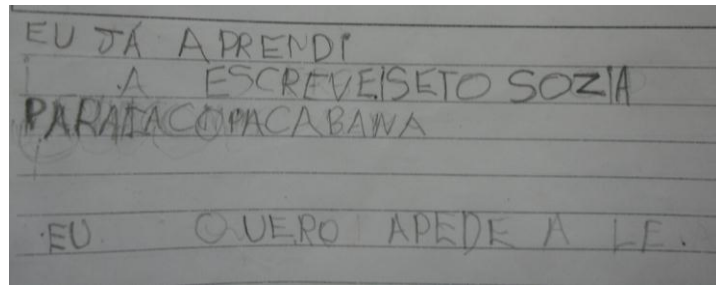 EU JÁ APRENDI
A ESCREVEISETO SOZIA
PARAIACOPACABANA
EU QUERO APEDE A LE.